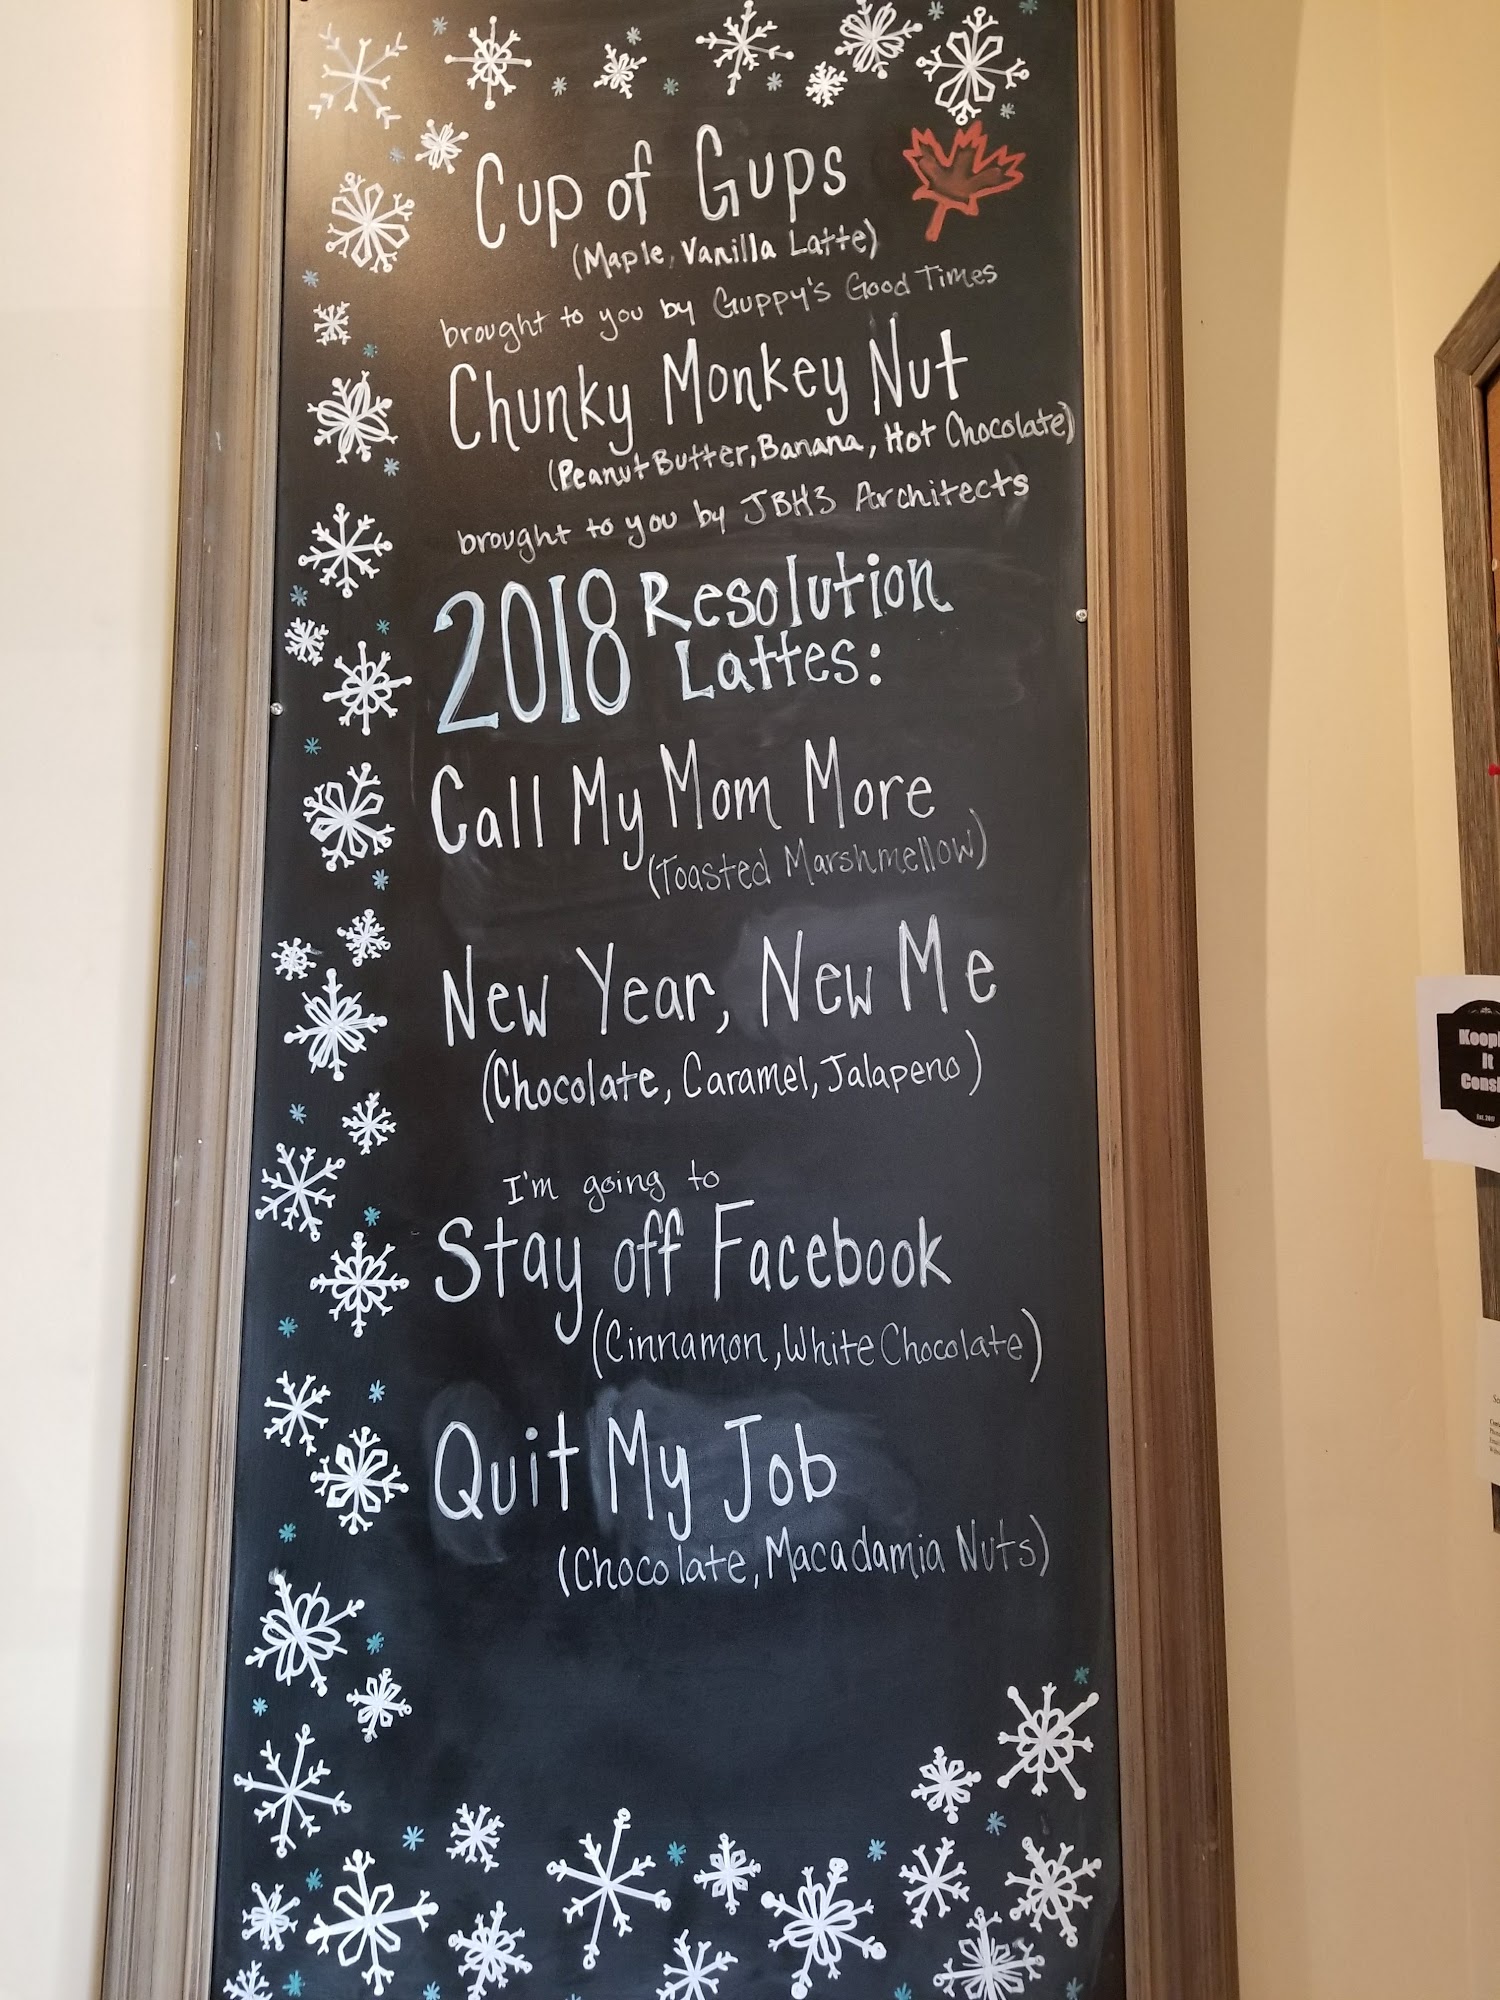 Cup of Gups
(Maple, Vanilla Latte)
brought to you by Guppy's Good Times
Chunky Monkey Nut
(Peanut Butter, Banana, Hot Chocolate)
brought to you by JBH3 Architects
2018 Resolution
Lattes:
Call My Mom More
(Toasted Marshmellow)
New Year, New Me
(Chocolate, Caramel, Jalapeno)
I'm going to
Stay off Facebook
(Cinnamon, White Chocolate)
Quit My Job
(Chocolate, Macadamia Nuts)
It